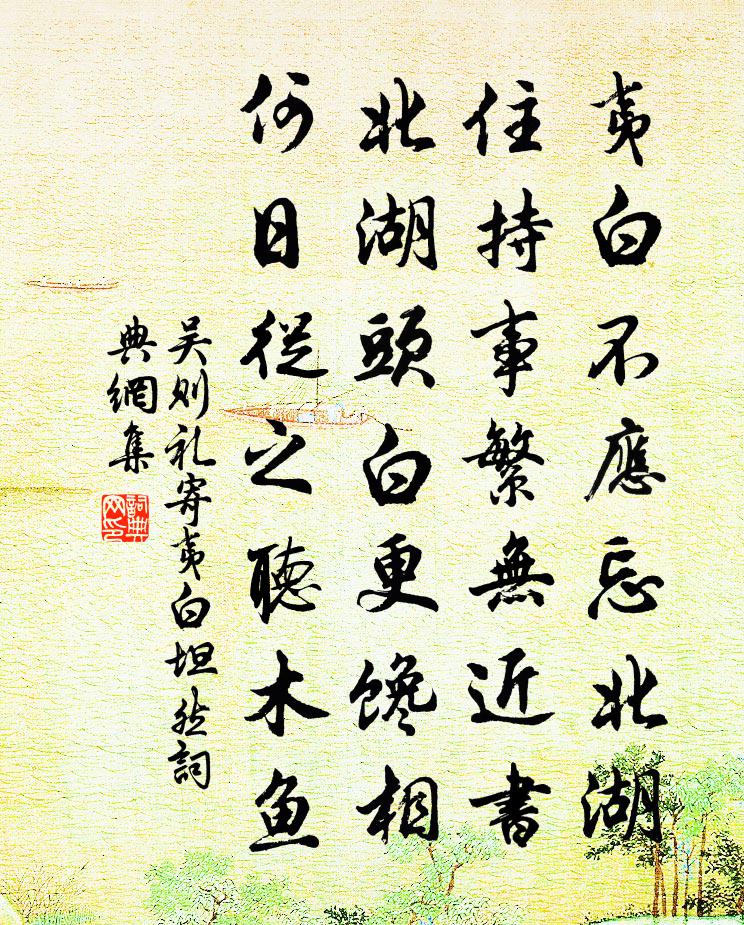 夷白不應忘北湖
住持事繁無近書
北湖頭白更馋相
何日從之聽木鱼
吴则礼寄夷白坦然詞
典網集
詞典網印